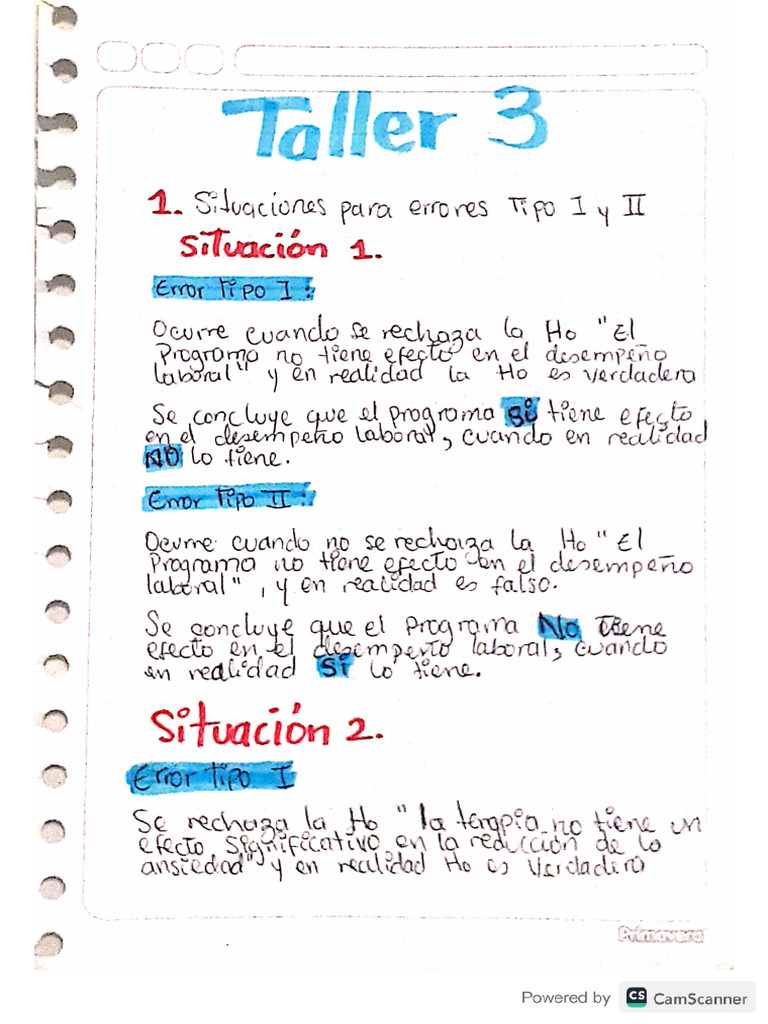 Taller 3
1. Situaciones para errores Tipo I y II
Situación 1.
Error Tipo I :
Ocurre cuando se rechaza la Ho "El
Programa no tiene efecto en el desempeño
laboral" y en realidad la Ho es verdadera
Se concluye que el programa si tiene efecto
en el desempeño laboral, cuando en realidad
NO lo tiene.
Error Tipo II :
Ocurre cuando no se rechaza la Ho "El
Programa no tiene efecto en el desempeño
laboral", y en realidad es falso.
Se concluye que el programa No tiene
efecto en el desempeño laboral, cuando
en realidad Si lo tiene.
Situación 2.
Error tipo I
Se rechaza la Ho "la terapia no tiene un
efecto significativo en la reducción de la
ansiedad" y en realidad Ho es verdadera
Primavera
Powered by CS CamScanner